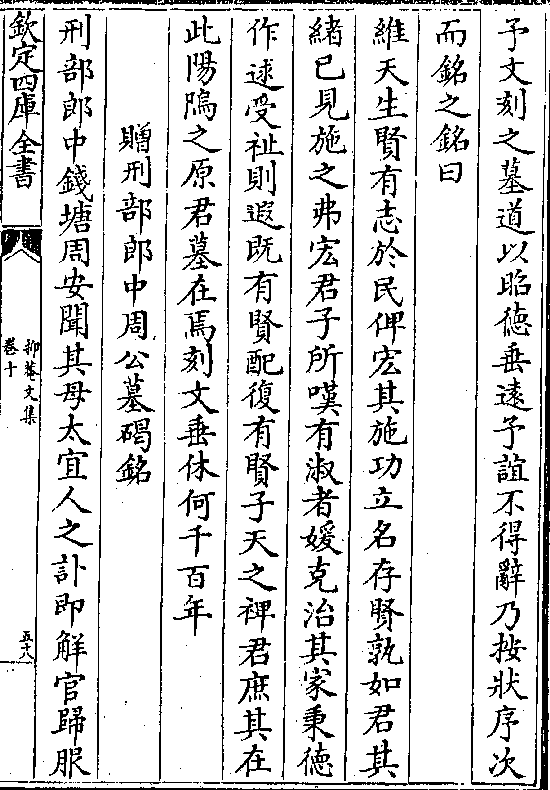 予文刻之墓道以昭德垂遠予誼不得辭乃按狀序次
而銘之銘曰
維天生賢有志於民俾宏其施功立名存賢孰如君其
緒已見施之弗宏君子所嘆有淑者媛克治其家秉德
作逑受祉則遐既有賢配復有賢子天之裨君庶其在
此陽鴈之原君墓在焉刻文垂休何千百年
贈刑部郎中周公墓碣銘
刑部郎中錢塘周安聞其母太宜人之訃即解官歸服
欽定四庫全書
抑菴文集
卷十
五十八